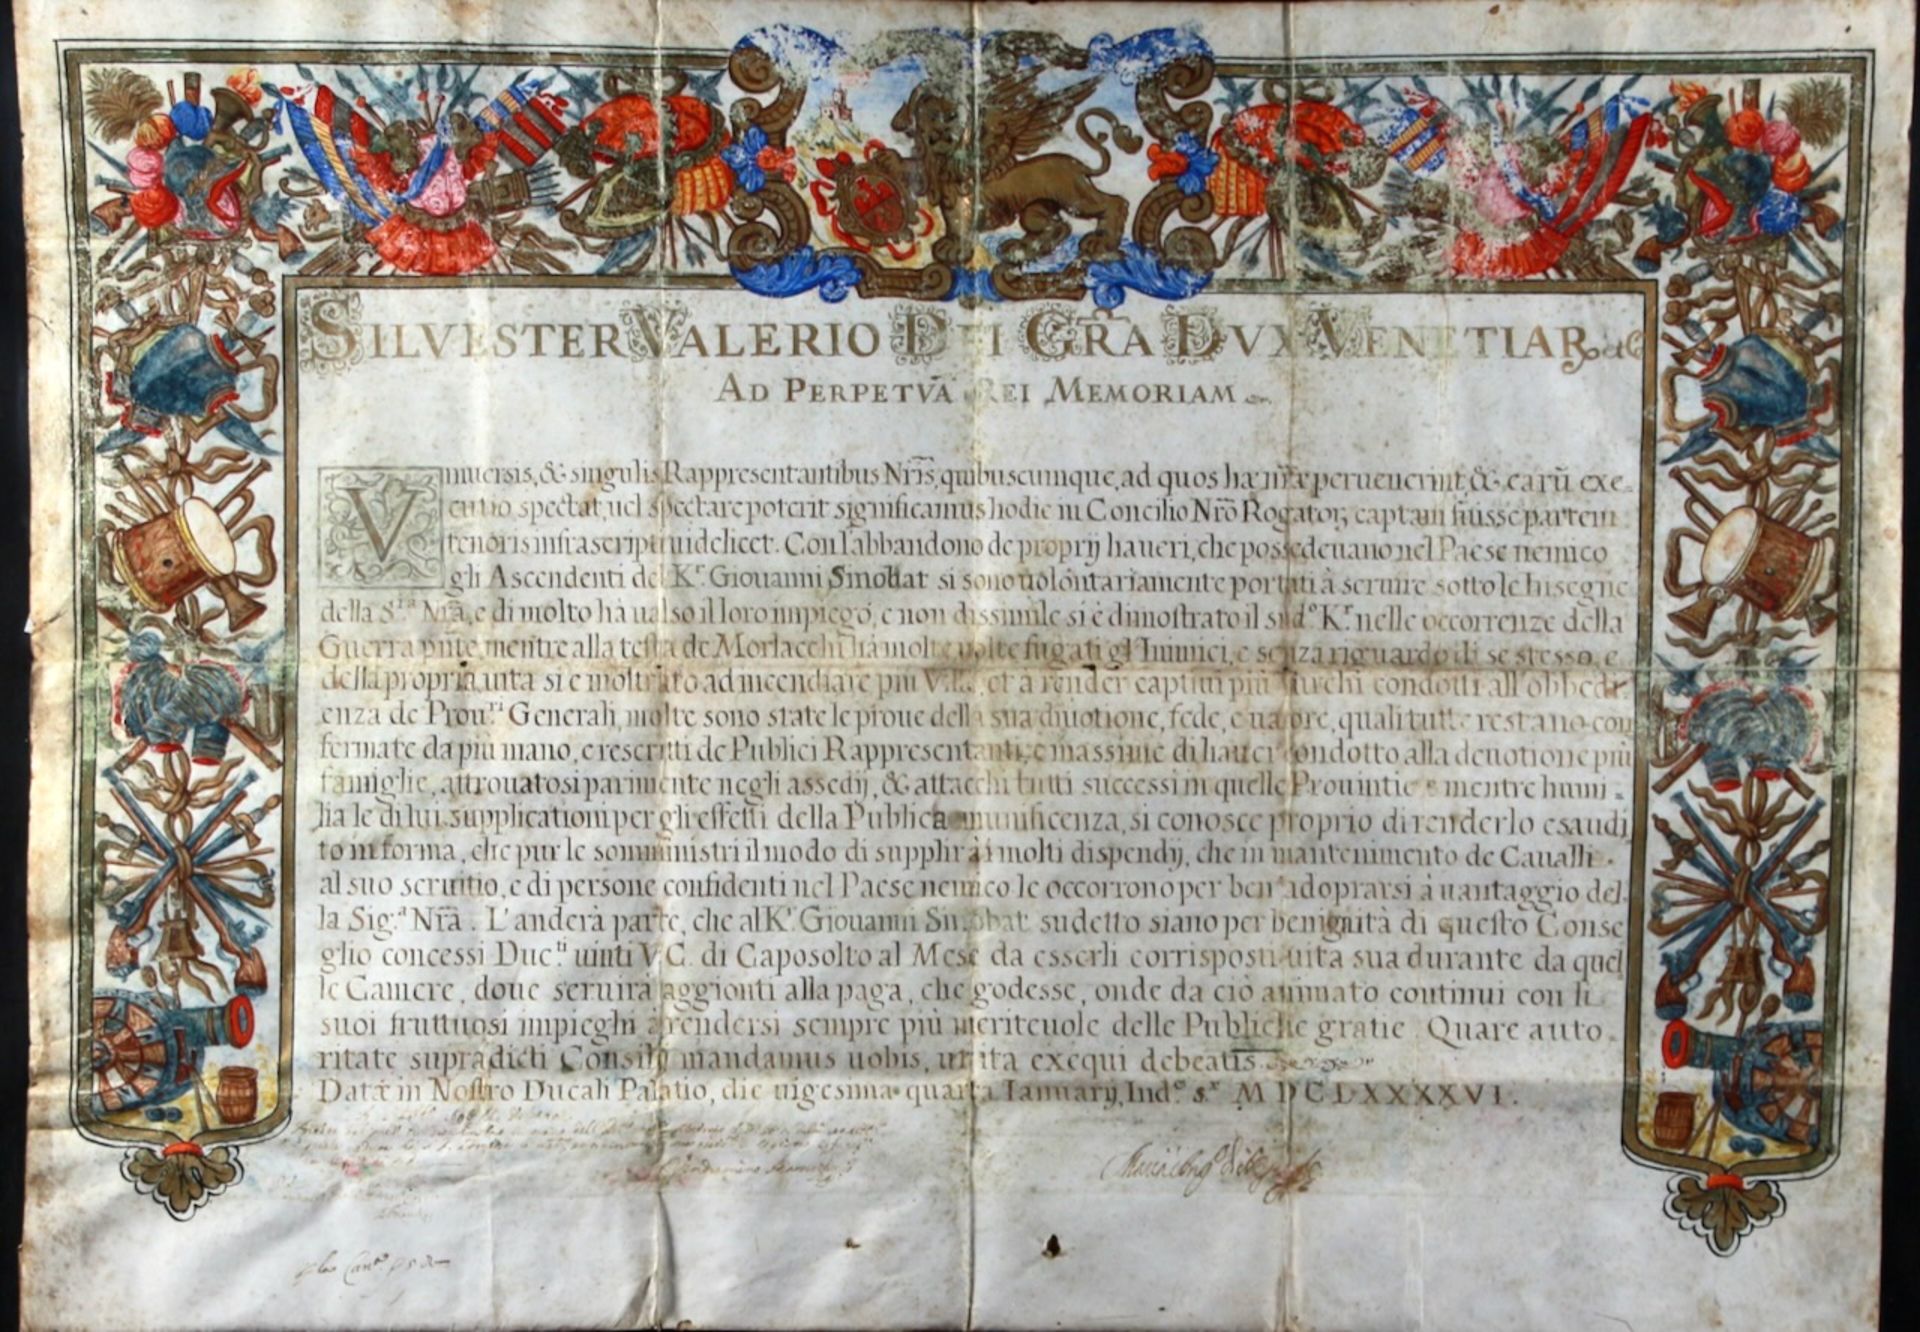 SILVESTER VALERIO DEI GR̃A DVX VENETIAR &c
AD PERPETVÃ REI MEMORIAM
Vniuersis, & singulis Rappresentantibus Nr̃is, quibuscumque, ad quos hæ nr̃æ peruenerint, & earũ exe-
cutio spectat, uel spectare poterit significamus hodie in Concilio Nr̃o Rogator, captam fuisse partem
tenoris infrascripti uidelicet. Con l'abbandono de proprij haueri, che possedeuano nel Paese nemico
gli Ascendenti del K.r Giouanni Smohat si sono uolontariamente portati à seruire sotto le Insegne
della S.ria Nr̃a, e di molto hà ualso il loro impiego, e non dissimile si è dimostrato il sud.o K.r nelle occorrenze della
Guerra pñte, mentre alla testa de Morlacchi hà molte uolte fugati gl'Inimici, e senza riguardo di se stesso, e
della propria uita si è mostrato ad incendiare più Ville, et à render captiui più Turchi condotti all'obbedi-
enza de Prou.ri Generali, molte sono state le proue della sua diuotione, fede, e ualore, quali tutte restano con
fermate da più mano, e rescritti de Publici Rappresentanti, e massime di hauer condotto alla deuotione più
famiglie, attrouatosi parimente negli assedij, & attacchi tutti successi in quelle Prouintie e mentre humi-
lia le di lui supplicationi per gli effetti della Publica munificenza, si conosce proprio di renderlo esaudi
to in forma, che pur le somministri il modo di supplir à i molti dispendij, che in mantenimento de Caualli
al suo seruitio, e di persone confidenti nel Paese nemico le occorrono per ben adoprarsi à uantaggio del-
la Sig.a Nr̃a. L'anderà parte, che al K.r Giouanni Smohat sudetto siano per benignità di questo Conse
glio concessi Duc.ti uinti V.C. di Caposolto al Mese da esserli corrisposti uita sua durante da quel
le Camere, doue seruirà aggionti alla paga, che godesse, onde da ciò animato continui con li
suoi fruttuosi impieghi à rendersi sempre più meriteuole delle Publiche gratie. Quare auto-
ritate supradicti Consilij mandamus uobis, ut ita exequi debeatis.
Datæ in Nostro Ducali Palatio, die uigesima quarta Ianuarij, Ind.e s.x MDCLXXXXVI.